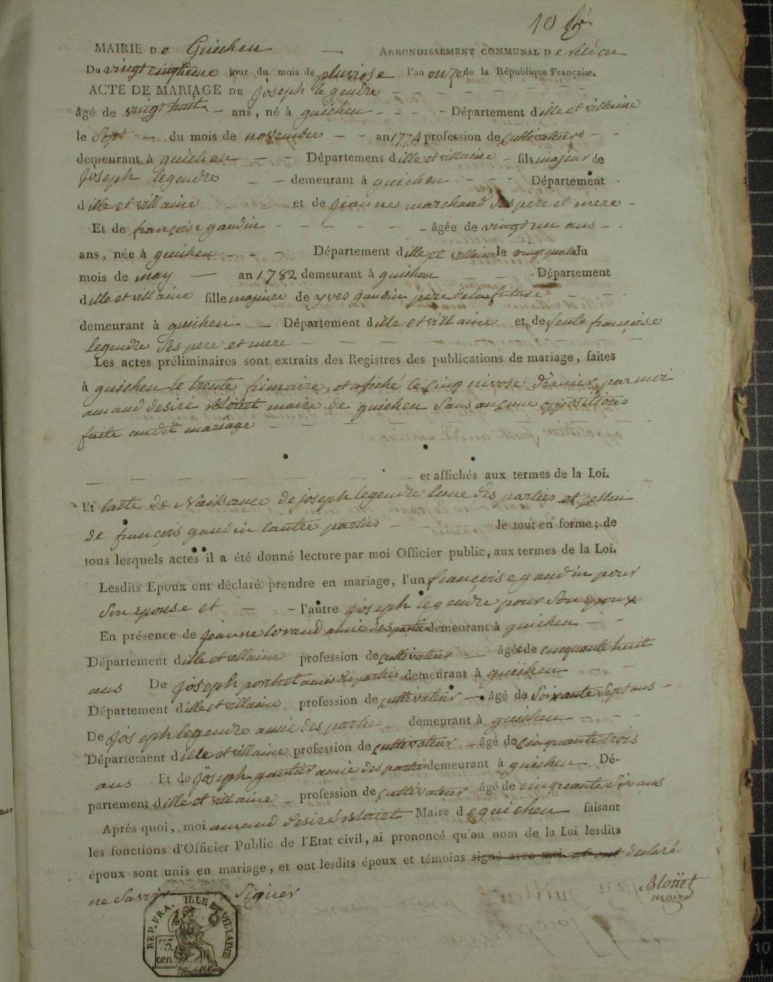 10
MAIRIE De Guichen — ARRONDISSEMENT COMMUNAL De redon
Du vingt cinqième jour du mois de pluviose l'an onze de la République Française.
ACTE DE MARIAGE DE joseph legendre
âgé de vingt huit ans, né à guichen Département d'ille et vilaine
le Sept du mois de novembre an 1774 profession de Cultivateur
demeurant à guichen Département d'ille et villaine fils majeur de
joseph legendre demeurant à guichen Département
d'ille et villaine et de jeanne marchand Ses pere et mere
Et de françoise gaudin âgée de vingt un ans
ans, née à guichen Département d'ille et villaine le vingt quatre du
mois de may an 1782 demeurant à guichen Département
d'ille et villaine fille majeure de yves gaudin pere
demeurant à guichen Département d'ille et villaine et de françoise
legendre Ses pere et mere
Les actes préliminaires sont extraits des Registres des publications de mariage, faites
à guichen le trente frimaire, et affiché le Cinq nivose dernier, par moi
amand desiré Bloüet maire de guichen Sans aucune oppositions
faite audit mariage
et affichés aux termes de la Loi.
Et lacte de Naissance de joseph legendre lune des parties et celleu
de françois gaudin lautre parties le tout en forme; de
tous lesquels actes il a été donné lecture par moi Officier public, aux termes de la Loi.
Lesdits Epoux ont déclaré prendre en mariage, l'un françoise gaudin pour
Son epouse et l'autre joseph legendre pour Son epoux
En présence de jeanne amie des partie demeurant à guichen
Département d'ille et villaine profession de cultivateur âgée de cinquante huit
ans De joseph amie des parties demeurant à guichen
Département d'ille et villaine profession de cultivateur âgé de Soixante Sept ans
De joseph legendre amie des partie demeurant à guichen
Département d'ille et villaine profession de cultivateur âgé de cinquante trois
ans Et de joseph gautier amie des parties demeurant à guichen Dé-
partement d'ille et villaine profession de Cultivateur âgé de cinquante Six ans
Après quoi, moi amand desiré Bloüet Maire de guichen faisant
les fonctions d'Officier Public de l'Etat civil, ai prononcé qu'au nom de la Loi lesdits
époux sont unis en mariage, et ont lesdits époux et témoins signé avec moi et ont declaré
ne Savoir Signer
Bloüet
maire
REP. FRA. ILLE ET VILLAINE
75
cen.
10